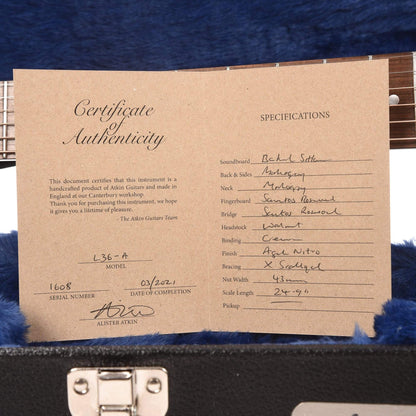 Certificate
of
Authenticity
This document certifies that this instrument is a
handcrafted product of Atkin Guitars and made in
England at our Canterbury workshop.
Thank you for purchasing this instrument, we hope
it gives you a lifetime of pleasure.
- The Atkin Guitars Team
L36-A
MODEL
1608 03/2021
SERIAL NUMBER DATE OF COMPLETION
ALISTER ATKIN
SPECIFICATIONS
Soundboard Baked Sitka
Back & Sides Mahogany
Neck Mahogany
Fingerboard Santos Rosewood
Bridge Santos Rosewood
Headstock Walnut
Binding Cream
Finish Aged Nitro
Bracing X Scalloped
Nut Width 43mm
Scale Length
Pickup